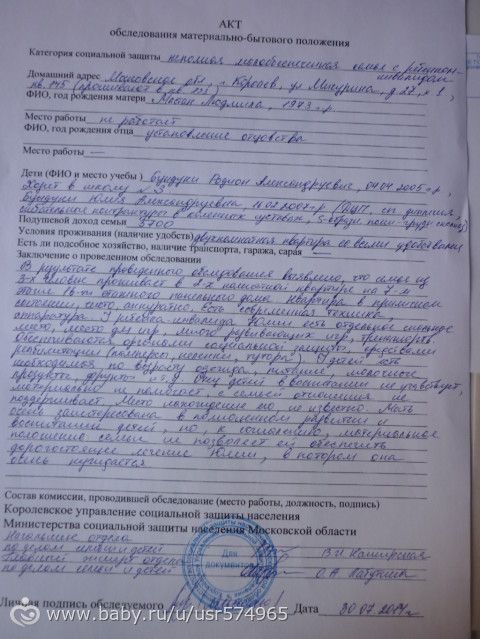 АКТ
обследования материально-бытового положения
Категория социальной защиты неполная малообеспеченная семья с ребенком-
инвалидом
Домашний адрес Московская обл., г. Королев, ул. Мичурина, д. 27, к
кв. 145 (проживают в кв.
ФИО, год рождения матери Людмила, 1973 г.р.
Место работы не работает
ФИО, год рождения отца установление отцовства
Место работы —
Дети (ФИО и место учебы) Родион Александрович, 04.04.2005 г.р.,
школу № 3
Юлия Александровна 2007 г.р. (ДЦП,
контрактуры в коленных суставах,
Подушевой доход семьи 5700
Условия проживания (наличие удобств) двухкомнатная квартира со всеми удобствами
Есть ли подсобное хозяйство, наличие транспорта, гаража, сарая —
Заключение о проведенном обследовании
В результате проведенного обследования выявлено, что семья из
3-х человек проживает в 2-х комнатной квартире на 4-м
этаже панельного дома. Квартира в приличном
состоянии, чисто, аккуратно, есть современная техника,
аппаратура. У ребенка-инвалида Юлии есть отдельное спальное
место, место для игр, много развивающих игр, тренажеры.
Обеспечиваются органами социальной защиты средствами
реабилитации (памперсы, пеленки, тутора). У детей есть
по возрасту одежда, питание молочные
продукты, фрукты и т.д. Отец детей в воспитании не участвует,
материально не помогает, с семьей отношения не
поддерживает. Место нахождение его не известно. Мать
очень заинтересована в полноценном развитии и
воспитании детей, но, к сожалению, материальное
положение семьи не позволяет ей обеспечить
дорогостоящее лечение Юлии, в котором она
очень нуждается.
Состав комиссии, проводившей обследование (место работы, должность, подпись)
Королевское управление социальной защиты населения
Министерства социальной защиты населения Московской области
Начальник отдела
по делам семьи и детей В.И.
Главный эксперт отдела
по делам семьи и детей О.А.
Для
документов
Личная подпись обследуемого Дата 30.07.2014г.
www.baby.ru/u/usr574965